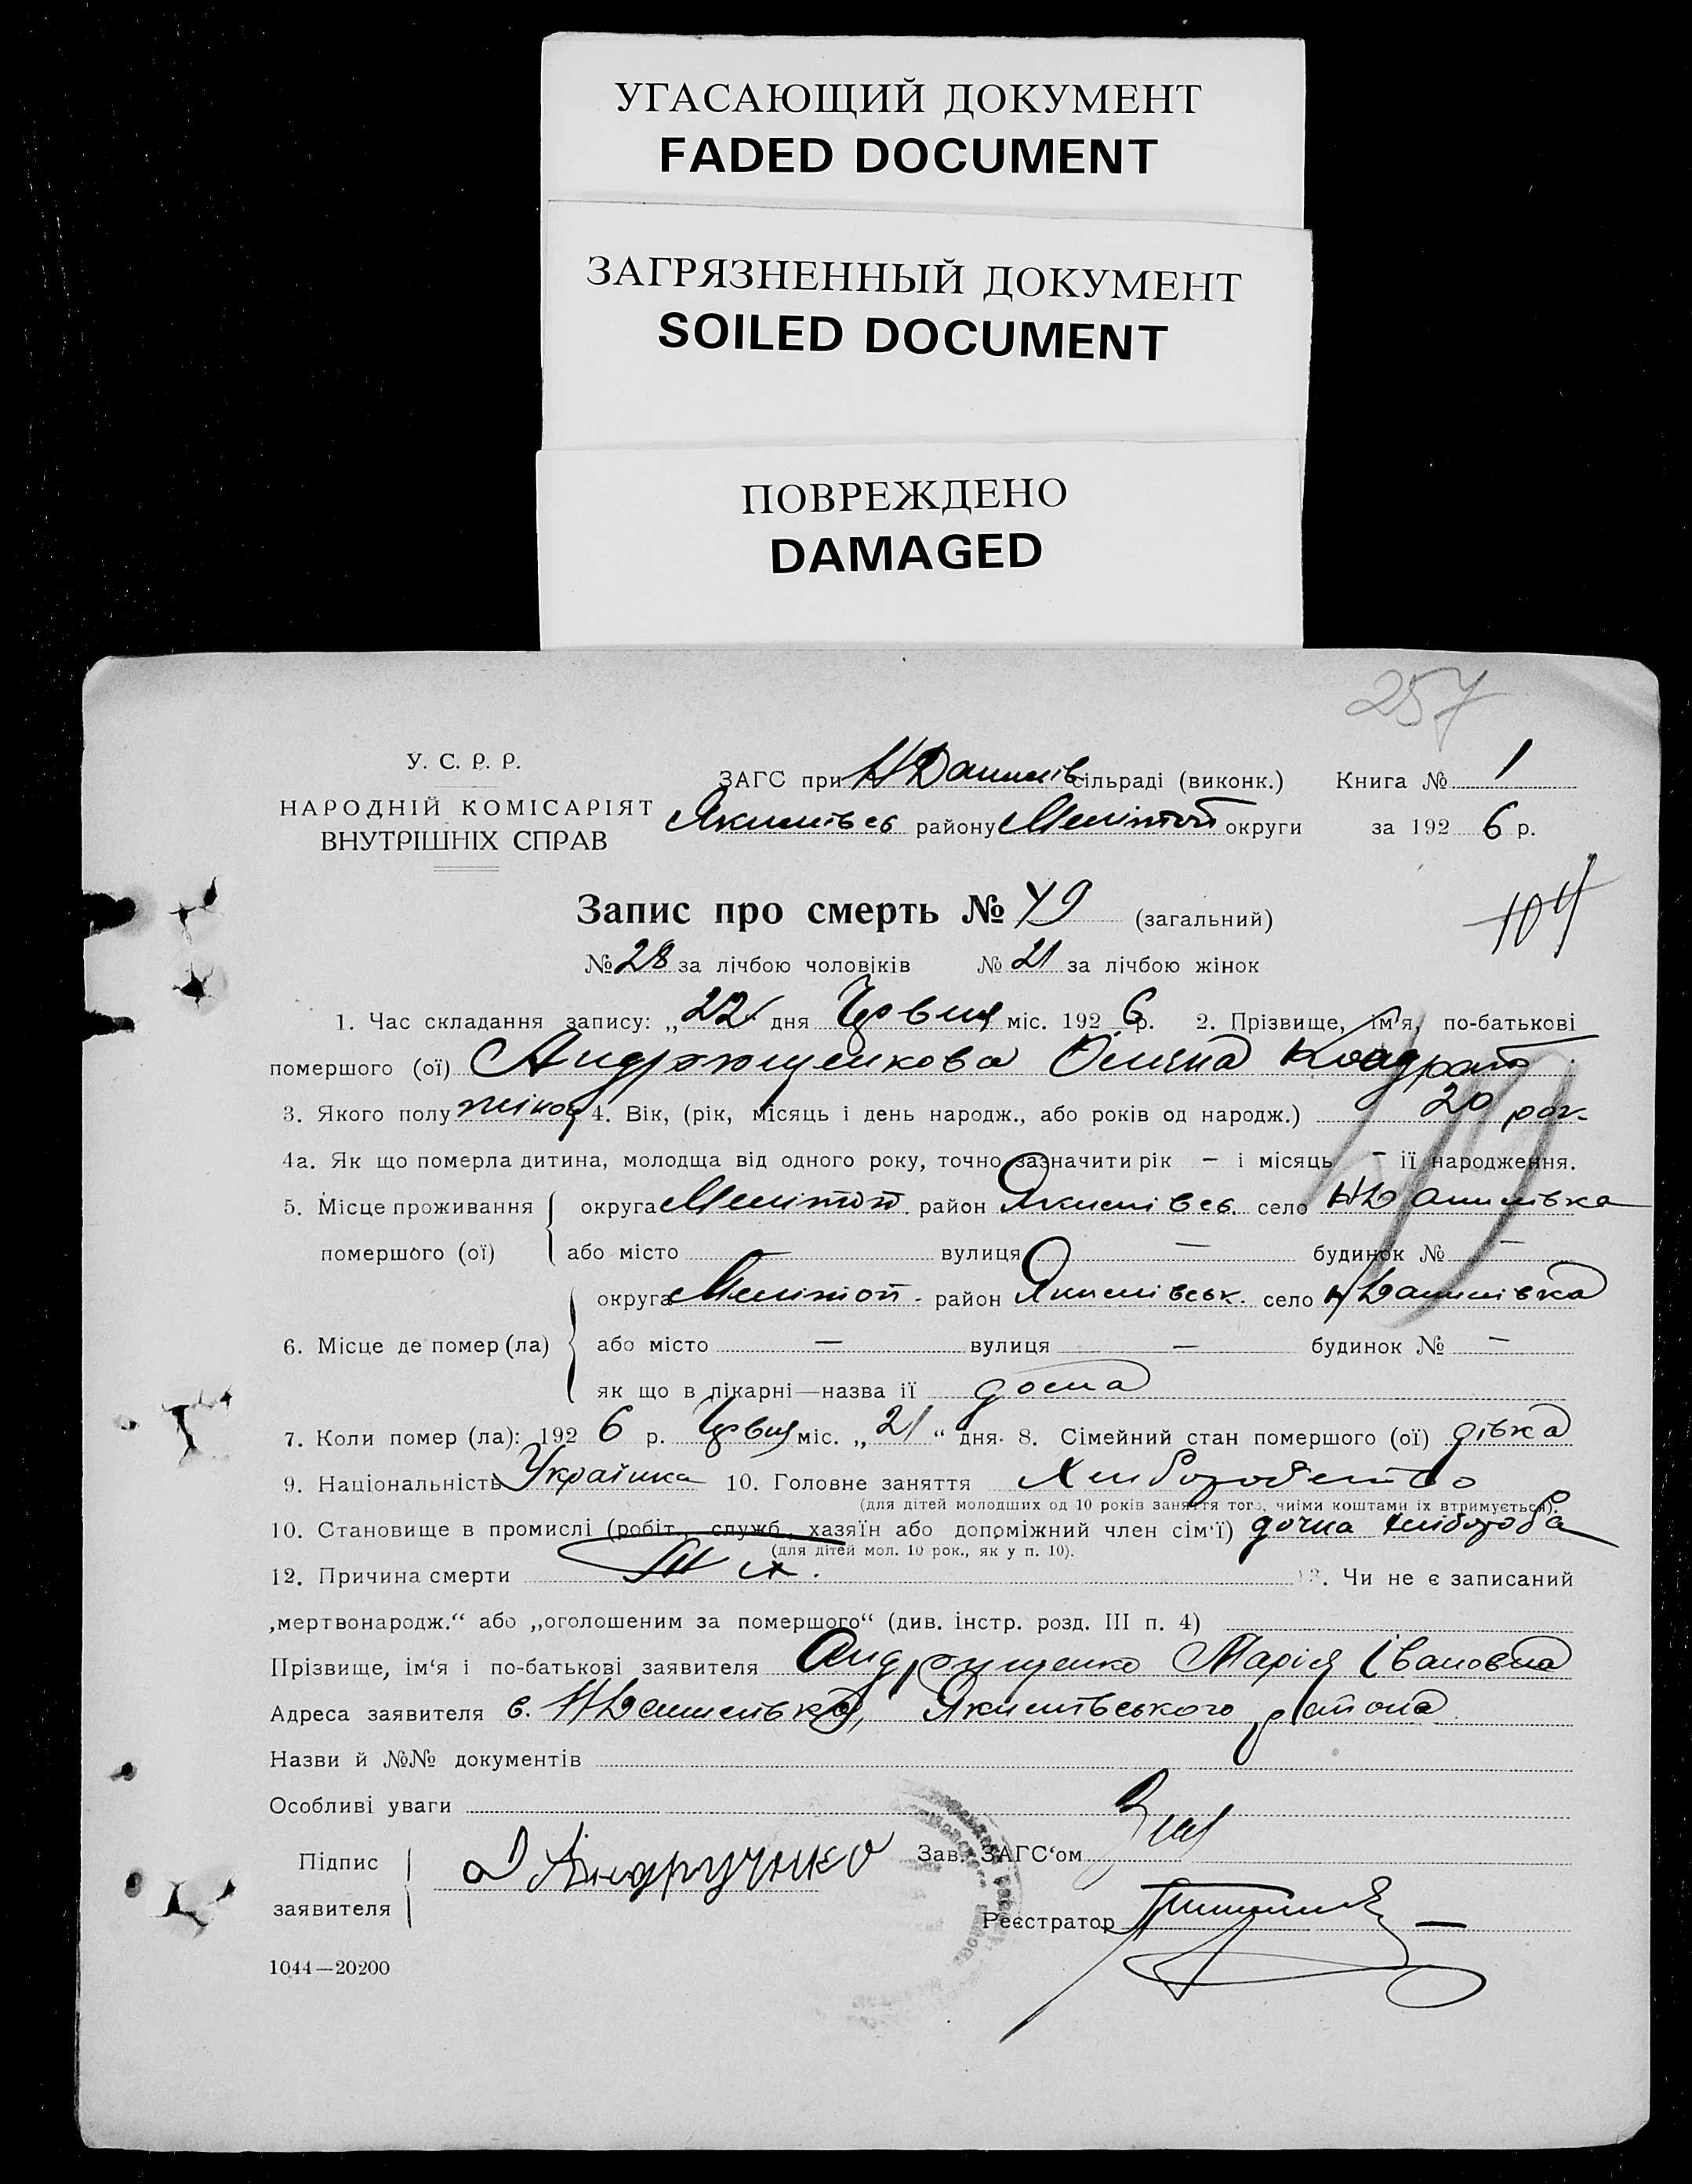 УГАСАЮЩИЙ ДОКУМЕНТ
FADED DOCUMENT
ЗАГРЯЗНЕННЫЙ ДОКУМЕНТ
SOILED DOCUMENT
ПОВРЕЖДЕНО
DAMAGED
257
У. С. Р. Р.
НАРОДНІЙ КОМІСАРІЯТ
ВНУТРІШНІХ СПРАВ
ЗАГС при Н Данилів сільраді (виконк.) Книга № 1
Якимівсь району Мелітоп округи за 192 6 р.
Запис про смерть № 49 (загальний)
104
№ 28 за лічбою чоловіків № 21 за лічбою жінок
1. Час складання запису: „22“ дня Червня міс. 192 6 р. 2. Прізвище, ім'я, по-батькові
помершого (ої) Андрющенкова Кондрат
3. Якого полу жіноч 4. Вік, (рік, місяць і день народж., або років од народж.) 20 рок.
4а. Як що померла дитина, молодща від одного року, точно зазначити рік — і місяць — ії народження.
5. Місце проживання округа Мелітоп. район Якимівсь. село Н Данилівка
помершого (ої) або місто — вулиця — будинок № —
округа Мелітоп. район Якимівськ. село Н Данилівка
6. Місце де помер (ла) або місто — вулиця — будинок № —
як що в лікарні—назва ії дома
7. Коли помер (ла): 192 6 р. Червня міс. „21“ дня. 8. Сімейний стан помершого (ої) дівка
9. Національність Українка 10. Головне заняття Хліборобство
(для дітей молодших од 10 років заняття того, чиіми коштами іх втримується).
10. Становище в промислі (робіт., служб., хазяїн або допоміжний член сім'ї) дочка хлібороба
(для дітей мол. 10 рок., як у п. 10).
12. Причина смерти 13. Чи не є записаний
„мертвонародж.“ або „оголошеним за помершого“ (див. інстр. розд. III п. 4)
Прізвище, ім'я і по-батькові заявителя Андрющенко Марія Івановна
Адреса заявителя с. Н Данилівка, Якимівського района
Назви й №№ документів
Особливі уваги
Підпис
заявителя
Зав. ЗАГС'ом
Реєстратор
1044—20200